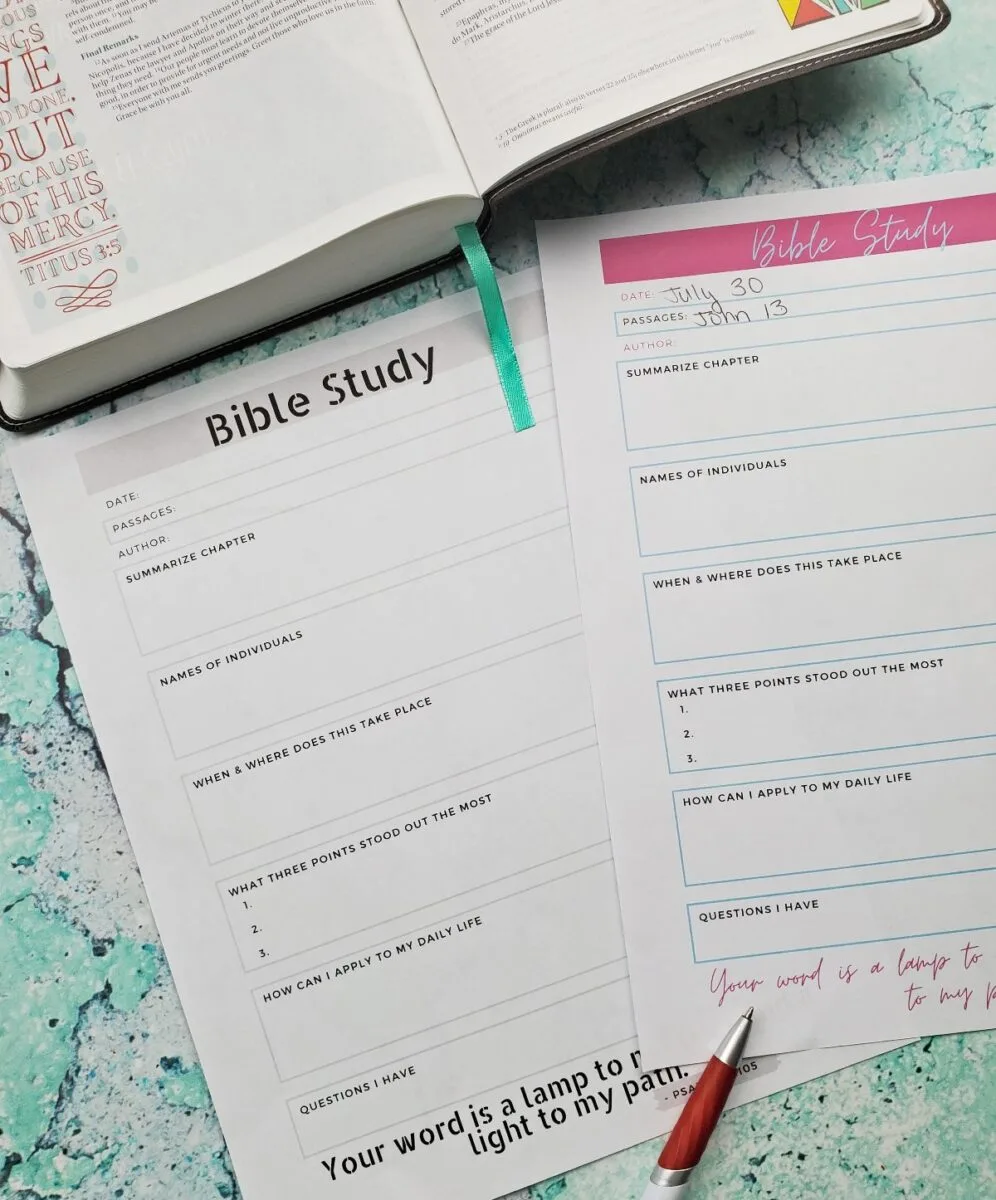 OUS
NGS
VE
D DONE,
BUT
BECAUSE
OF HIS
MERCY.
TITUS 3:5
self-condemned.
Final Remarks
As soon as I send Artemas or Tychicus to
Nicopolis, because I have decided to winter there.
help Zenas the lawyer and Apollos on their way and see
thing they need. Our people must learn to devote themselves
good, in order to provide for urgent needs and not live unproductive
Everyone with me sends you greetings. Greet those who love us in the faith.
Grace be with you all.
Epaphras, my
do Mark, Aristarchus,
The grace of the Lord Jesus
The Greek is plural; also in verses 22 and 25; elsewhere in this letter "you" is singular.
Onesimus means useful.
Bible Study
DATE:
PASSAGES:
AUTHOR:
SUMMARIZE CHAPTER
NAMES OF INDIVIDUALS
WHEN & WHERE DOES THIS TAKE PLACE
WHAT THREE POINTS STOOD OUT THE MOST
1.
2.
3.
HOW CAN I APPLY TO MY DAILY LIFE
QUESTIONS I HAVE
Your word is a lamp to
light to my path.
- PSA 105
Bible Study
DATE: July 30
PASSAGES: John 13
AUTHOR:
SUMMARIZE CHAPTER
NAMES OF INDIVIDUALS
WHEN & WHERE DOES THIS TAKE PLACE
WHAT THREE POINTS STOOD OUT THE MOST
1.
2.
3.
HOW CAN I APPLY TO MY DAILY LIFE
QUESTIONS I HAVE
Your word is a lamp to
to my p